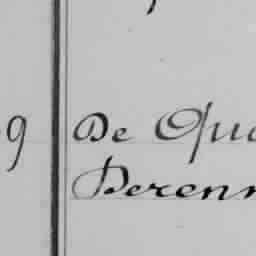 9 De Qua
Derenn